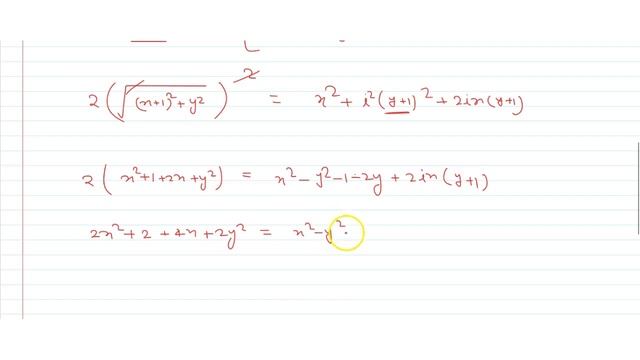 2(√(x+1)²+y²)² = x²+i²(y+1)²+2ix(y+1)
2(x²+1+2x+y²) = x²-y²-1-2y+2ix(y+1)
2x²+2+4x+2y² = x²-y²